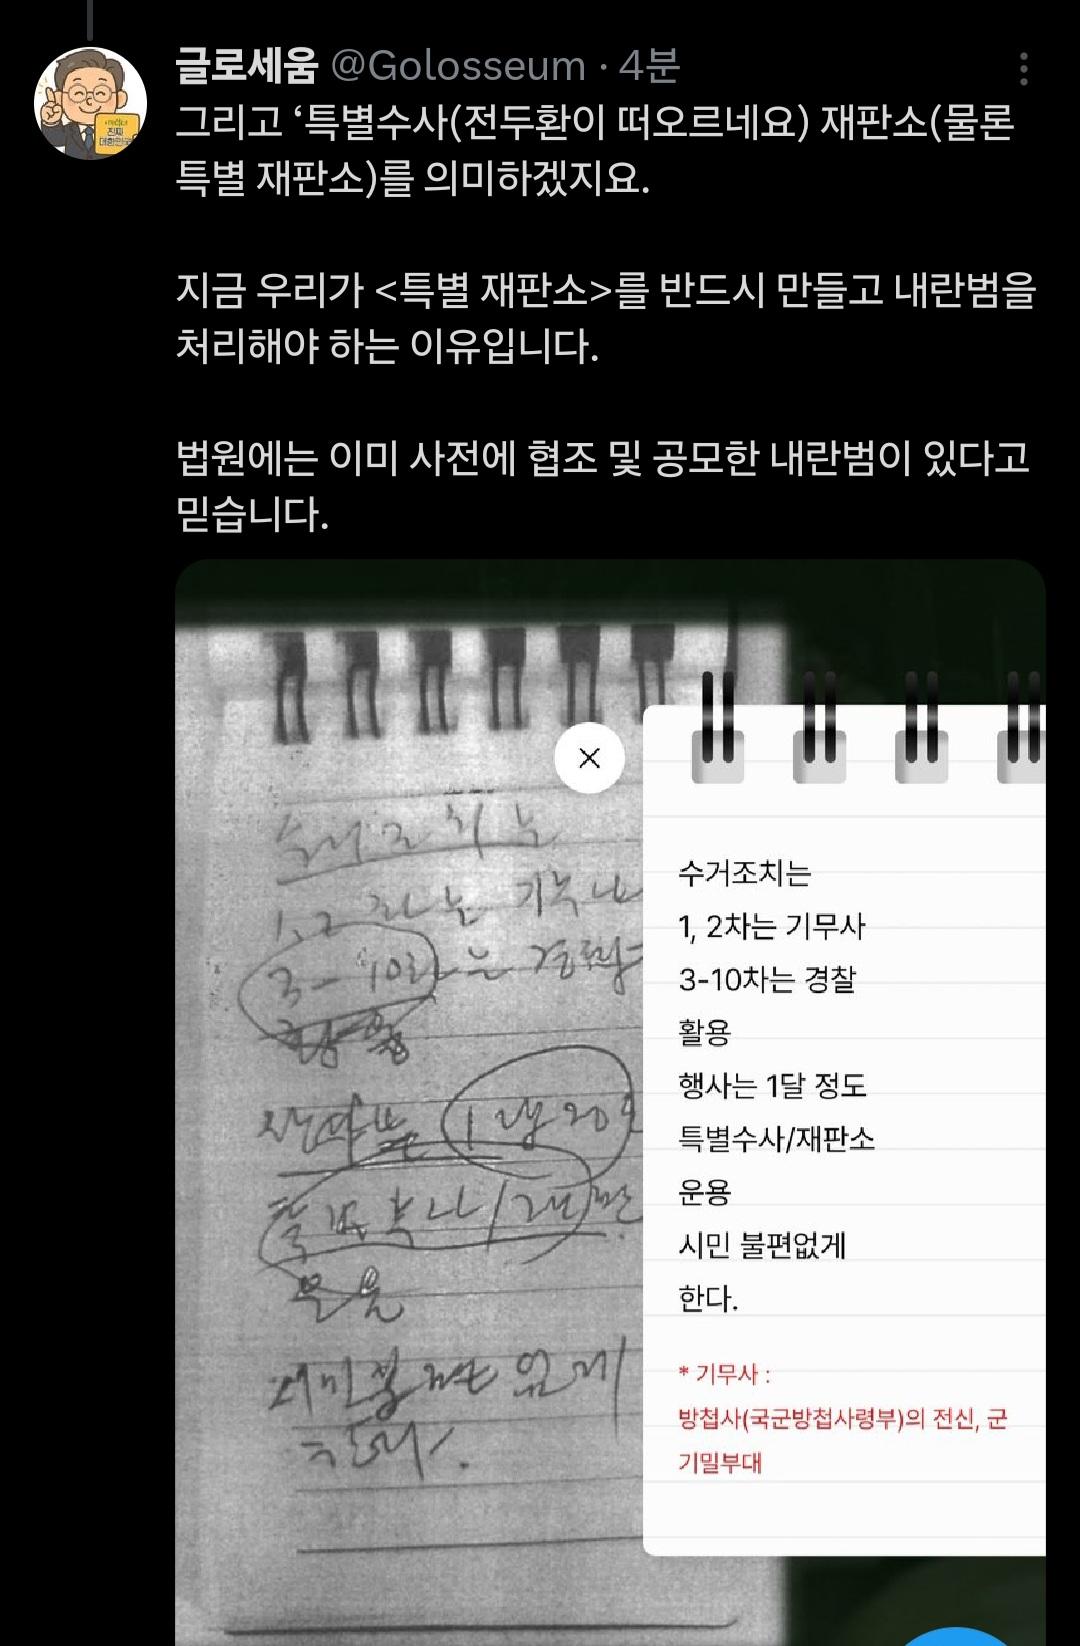 글로세움 @Golosseum · 4분
그리고 ‘특별수사(전두환이 떠오르네요) 재판소(물론
특별 재판소)를 의미하겠지요.
지금 우리가 <특별 재판소>를 반드시 만들고 내란범을
처리해야 하는 이유입니다.
법원에는 이미 사전에 협조 및 공모한 내란범이 있다고
믿습니다.
수거조치는
1, 2차는 기무사
3-10차는 경찰
활용
행사는 1달 정도
특별수사/재판
운용
시민 불편 없게
한다.
수거조치는
1, 2차는 기무사
3-10차는 경찰
활용
행사는 1달 정도
특별수사/재판소
운용
시민 불편없게
한다.
* 기무사 :
방첩사(국군방첩사령부)의 전신, 군
기밀부대